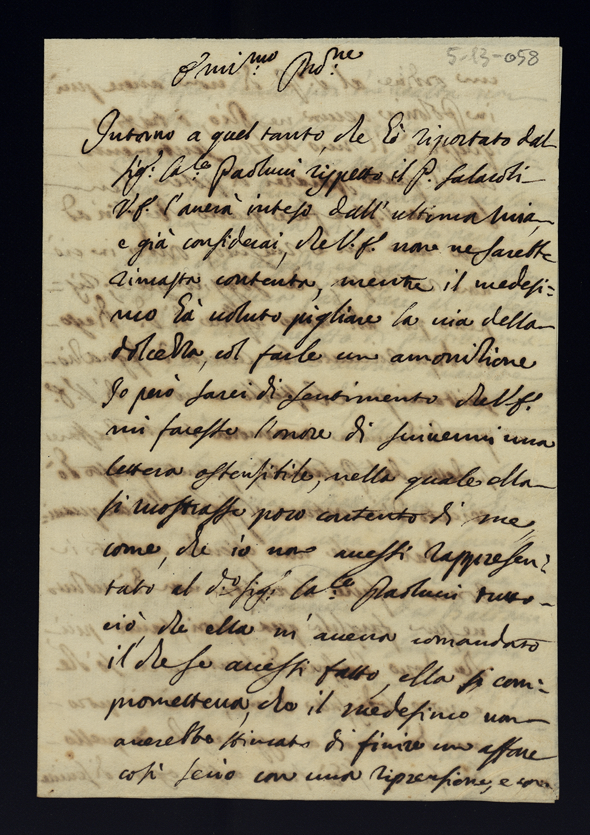 5-13-058
Emi.mo Pnõ.ne
Intorno a quel tanto, che hà riportato dal
sig.r Ca.le Paolucci rispetto il P. Salaroli
V.S. l'auerà inteso dall'ultima mia,
e già considerai, che V.S. non ne sarebbe
rimasta contenta, mentre il medesi=
mo hà uoluto pigliare la uia della
dolcezza, col farle un amonitione
Io però sarei di sentimento che V.S.
mi facesse l'onore di scriuermi una
lettera ostensibile, nella quale ella
si mostrasse poco contento di me,
come, che io non auessi rappresen=
tato al d.o sig.r Ca.le Paolucci tutto
ciò, che ella m'aueua comandato
il che se auessi fatto, ella si com=
prometteua, che il medesimo non
auerebbe stimato di finire un affare
così serio con una riprensione, e con